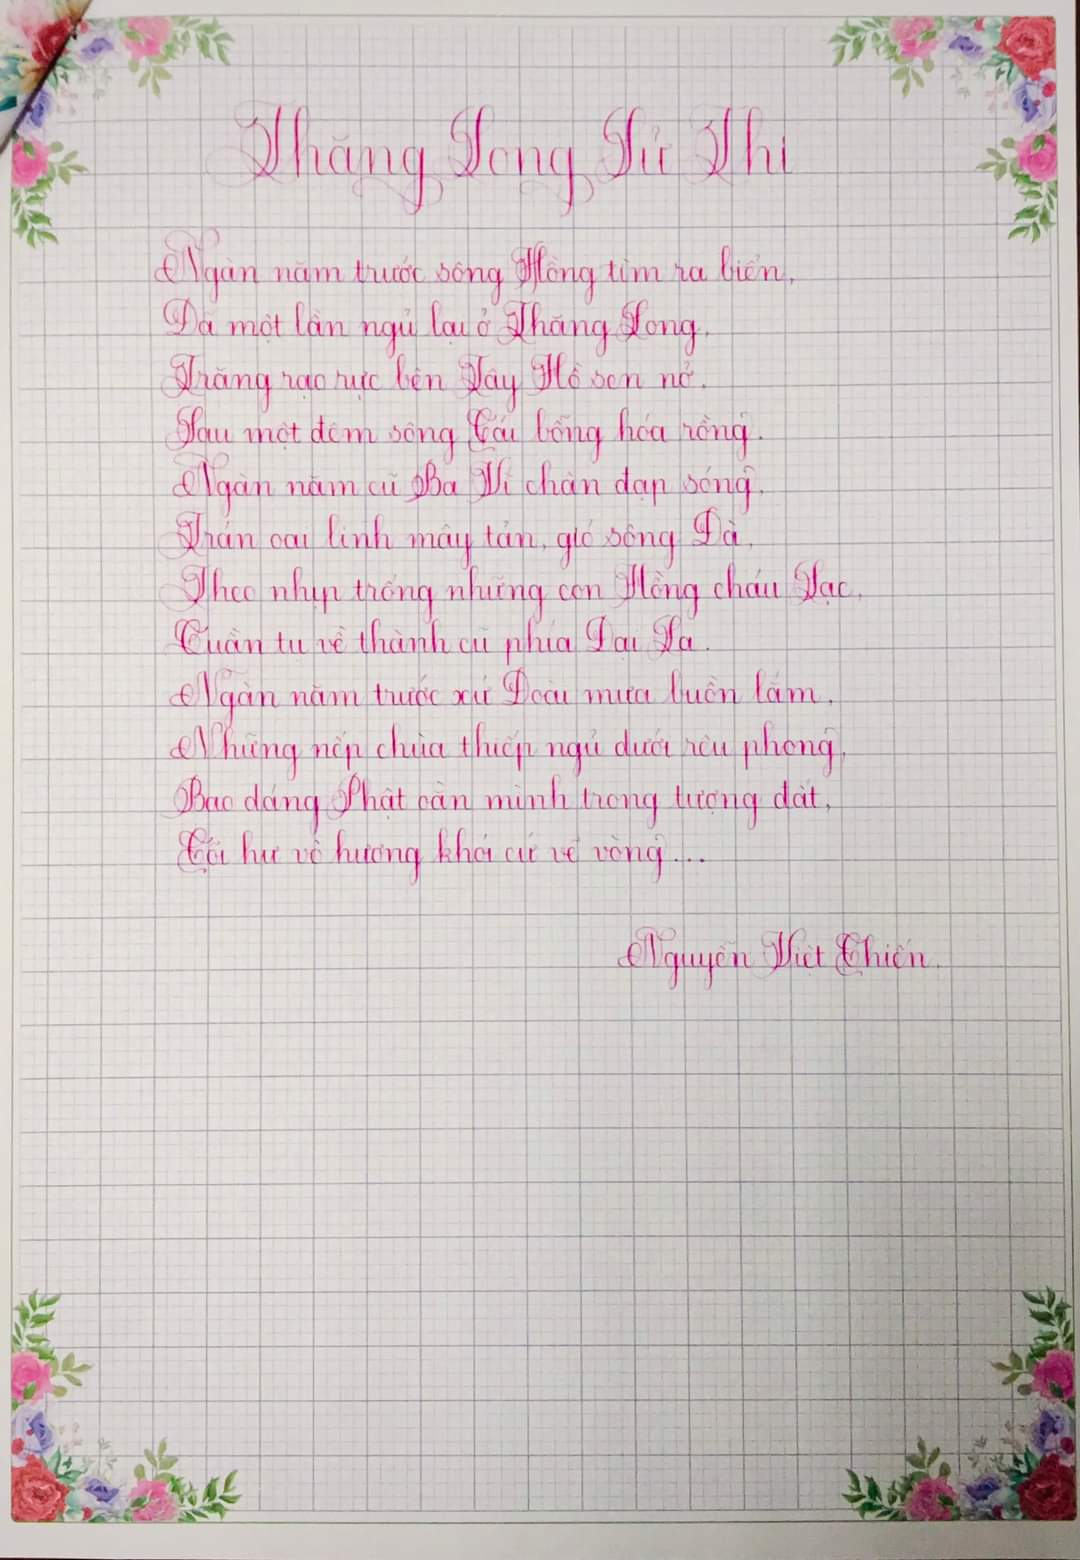 Thăng Long Tứ Thi
Ngàn năm trước sông Hồng tìm ra biển,
Đã một lần ngủ lại ở Thăng Long,
Trăng rạo rực bên Tây Hồ sen nở.
Sau một đêm sông Cái bỗng hóa rồng.
Ngàn năm cũ Ba Vì chân đạp sóng,
Trán oai linh mây tản, gió sông Đà,
Theo nhịp trống những con Hồng cháu Lạc,
Quần tụ về thành cũ phía Đại La.
Ngàn năm trước xứ Đoài mưa buồn lắm,
Những nếp chùa thiếp ngủ dưới rêu phong,
Bao dáng Phật oằn mình trong tượng đất,
Cõi hư vô hương khói cứ vẽ vòng...
Nguyễn Việt Chiến.